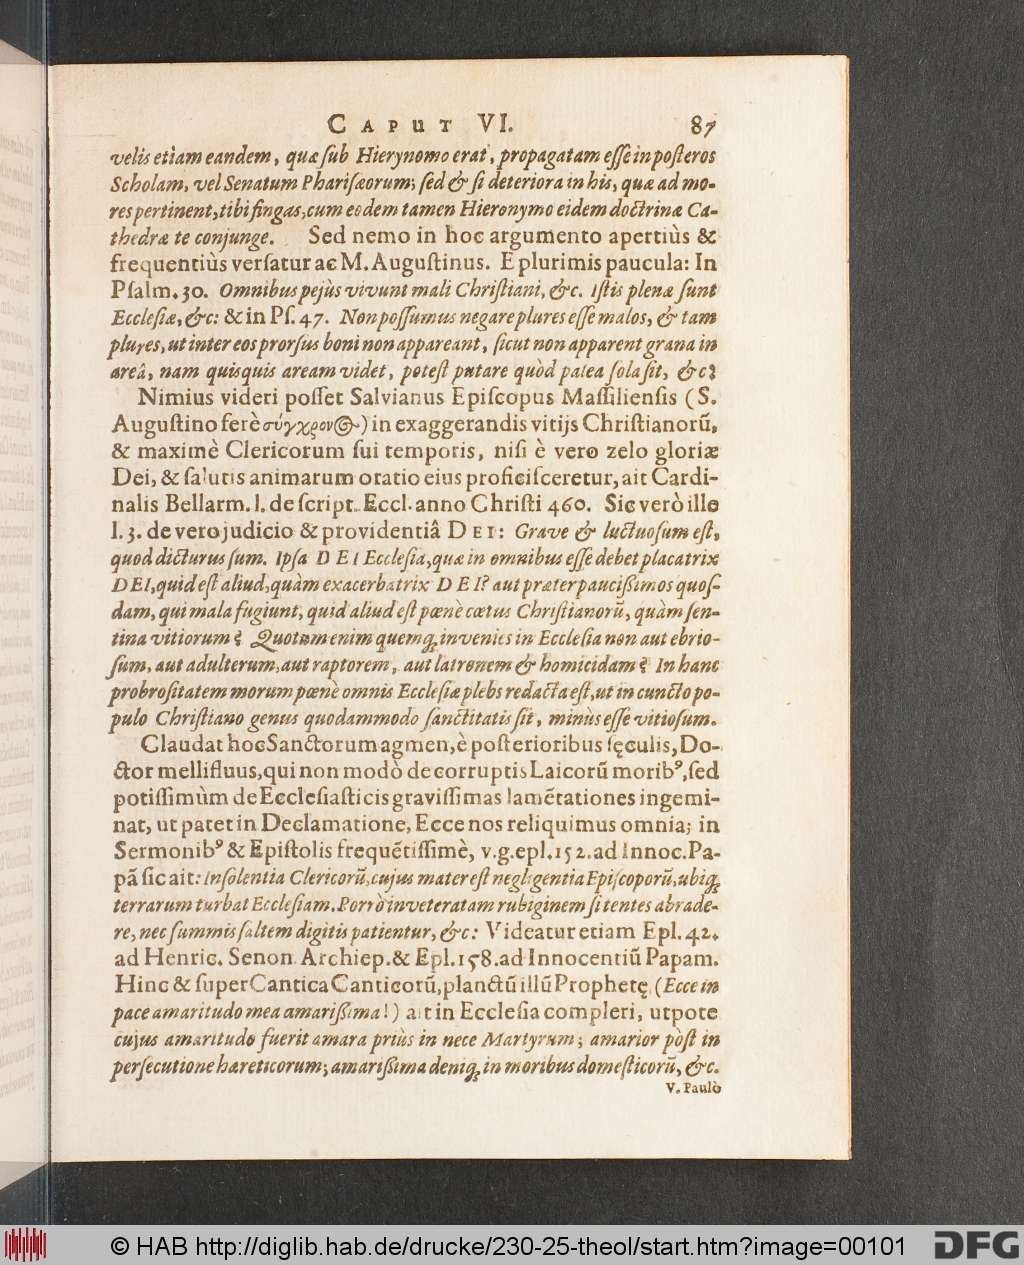 CAPUT VI. 87
velis etiam eandem, quæ sub Hierynomo erat, propagatam esse in posteros
Scholam, vel Senatum Pharisæorum; sed & si deteriora in his, quæ ad mo-
res pertinent, tibi fingas, cum eodem tamen Hieronymo eidem doctrinæ Ca-
thedræ te conjunge. Sed nemo in hoc argumento apertiùs &
frequentiùs versatur ac M. Augustinus. E plurimis paucula: In
Psalm. 30. Omnibus pejùs vivunt mali Christiani, &c. Istis plenæ sunt
Ecclesiæ, &c: & in Ps. 47. Non possumus negare plures esse malos, & tam
plures, ut inter eos prorsus boni non appareant, sicut non apparent grana in
areâ, nam quisquis aream videt, potest putare quòd palea sola sit, &c?
Nimius videri posset Salvianus Episcopus Massiliensis (S.
Augustino ferè σύγχρονος) in exaggerandis vitijs Christianorū,
& maximè Clericorum sui temporis, nisi è vero zelo gloriæ
Dei, & salutis animarum oratio eius proficisceretur, ait Cardi-
nalis Bellarm. l. de script. Eccl. anno Christi 460. Sic verò ille
l. 3. de vero judicio & providentiâ DEI: Grave & luctuosum est,
quod dicturus sum. Ipsa DEI Ecclesia, quæ in omnibus esse debet placatrix
DEI, quid est aliud, quàm exacerbatrix DEI? aut præter paucissimos quos-
dam, qui mala fugiunt, quid aliud est pœnè cœtus Christianorū, quàm sen-
tina vitiorum? Quotum enim quemq; invenies in Ecclesia non aut ebrio-
sum, aut adulterum, aut raptorem, aut latronem & homicidam? In hanc
probrositatem morum pœnè omnis Ecclesiæ plebs redacta est, ut in cuncto po-
pulo Christiano genus quodammodo sanctitatis sit, minùs esse vitiosum.
Claudat hoc Sanctorum agmen, è posterioribus sęculis, Do-
ctor mellifluus, qui non modò de corruptis Laicorū moribꝰ, sed
potissimùm de Ecclesiasticis gravissimas lamētationes ingemi-
nat, ut patet in Declamatione, Ecce nos reliquimus omnia; in
Sermonibꝰ & Epistolis frequētissimè, v.g. epl. 152. ad Innoc. Pa-
pā sic ait: Insolentia Clericorū, cujus mater est negligentia Episcoporū, ubiq;
terrarum turbat Ecclesiam. Porrò inveteratam rubiginem si tentes abrade-
re, nec summis saltem digitis patientur, &c: Videatur etiam Epl. 42.
ad Henric. Senon. Archiep. & Epl. 158. ad Innocentiū Papam.
Hinc & super Cantica Canticorū, planctū illū Prophetę (Ecce in
pace amaritudo mea amarissima!) ait in Ecclesia compleri, utpote
cujus amaritudo fuerit amara priùs in nece Martyrum; amarior pòst in
persecutione hæreticorum; amarissima deniq; in moribus domesticorū, &c.
V. Paulò
© HAB http://diglib.hab.de/drucke/230-25-theol/start.htm?image=00101
DFG